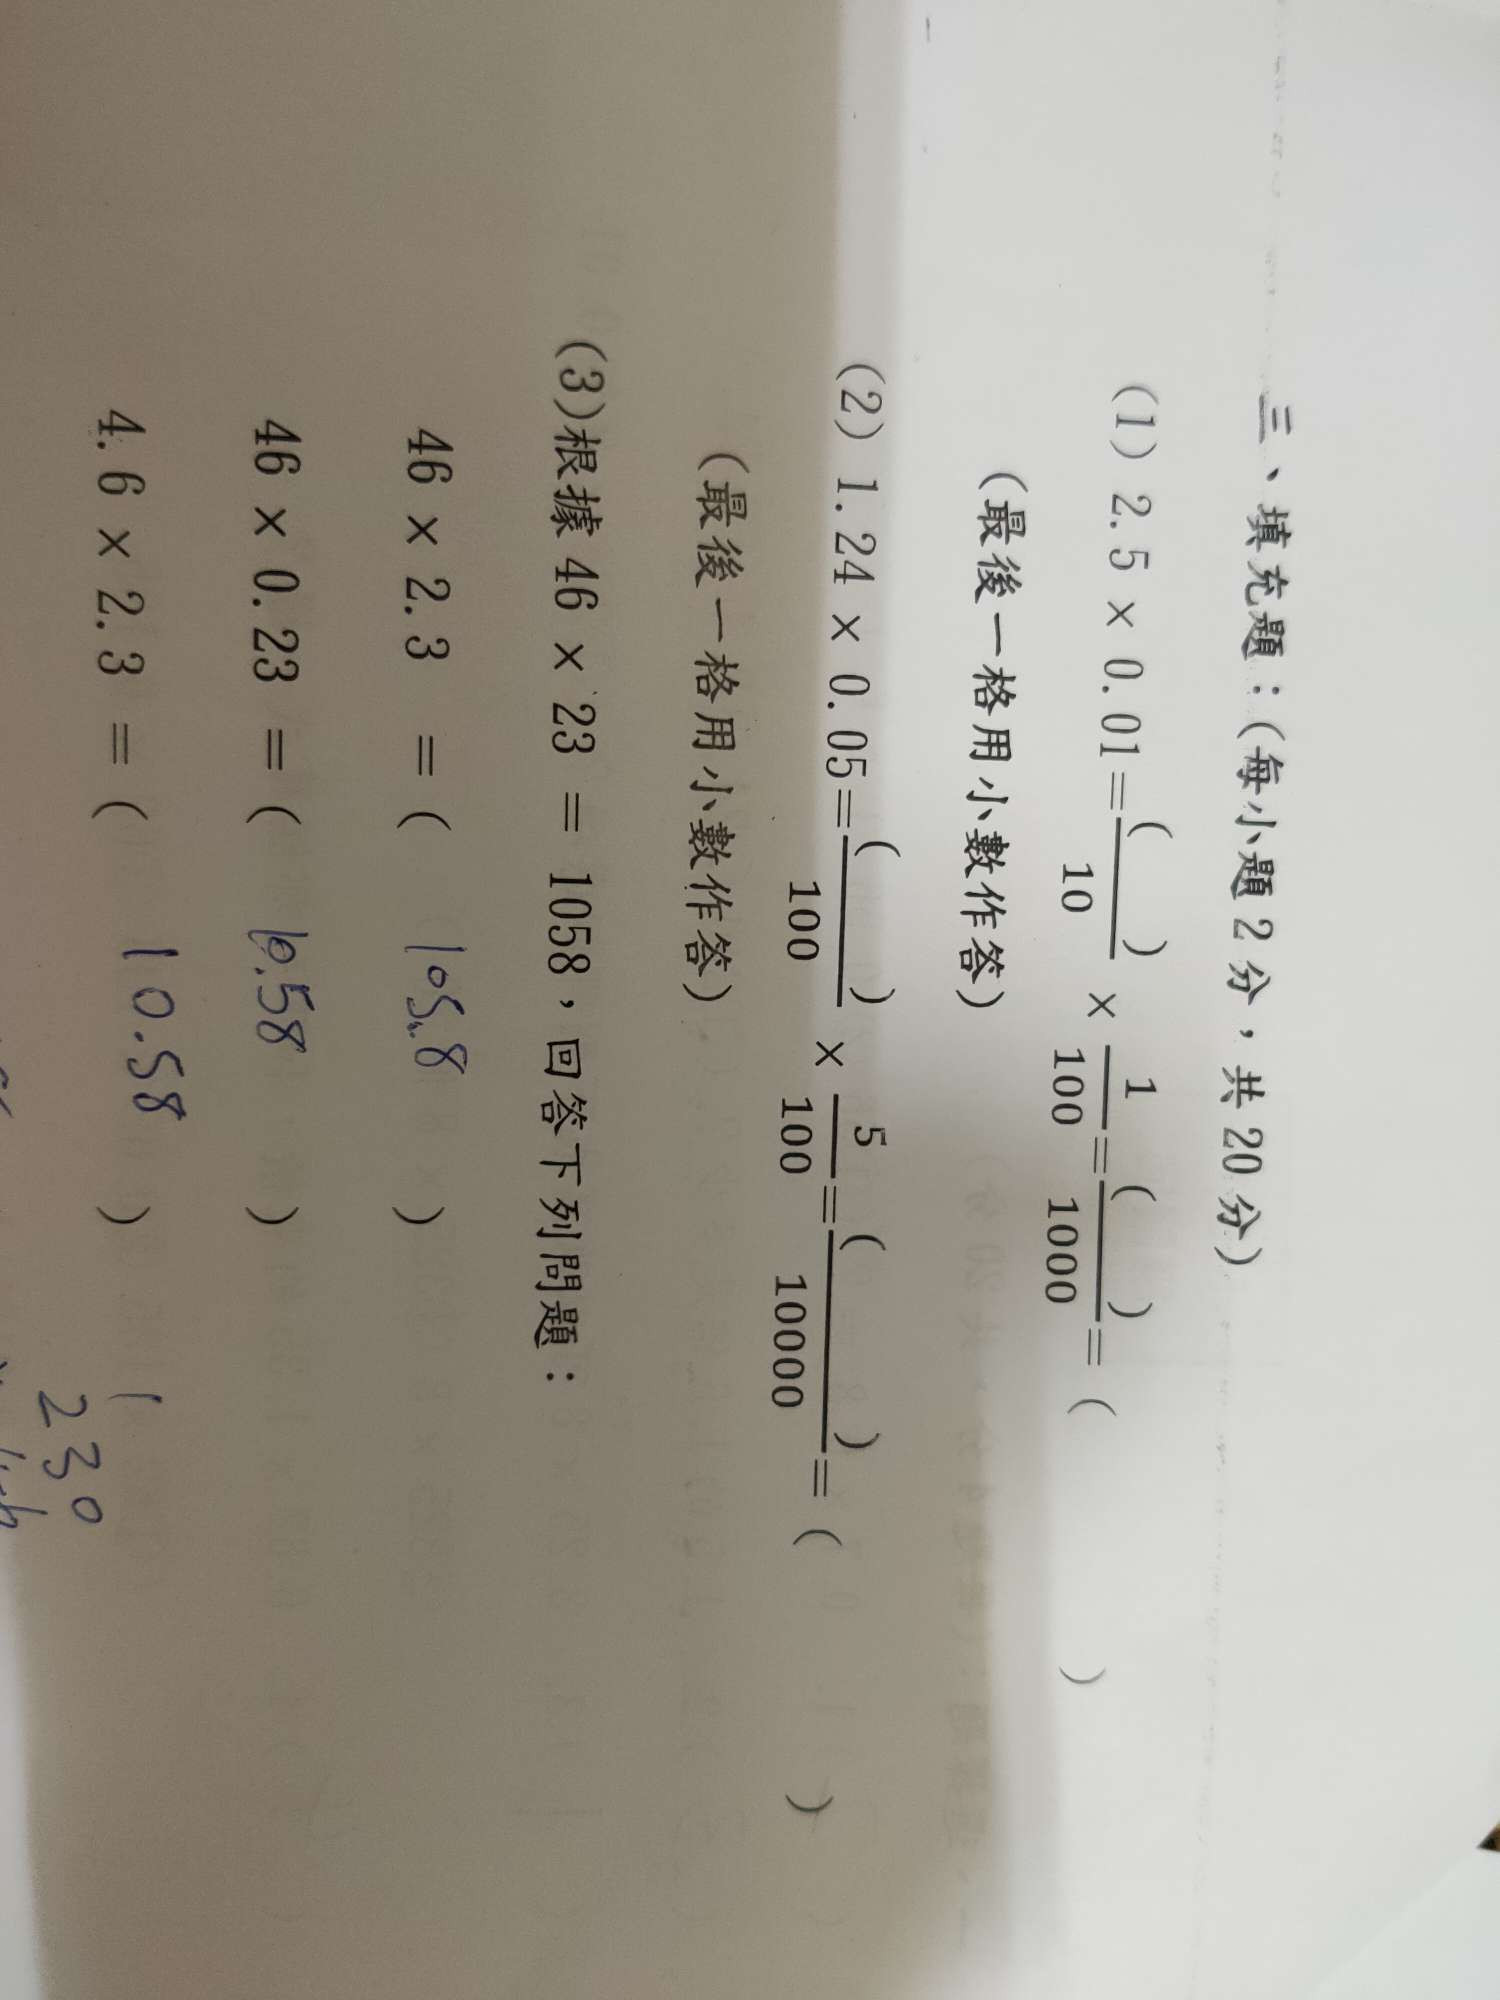 三、填充題：(每小題2分，共20分)
(1) 2.5 × 0.01=( )/10 × 1/100=( )/1000=( )
(最後一格用小數作答)
(2) 1.24 × 0.05=( )/100 × 5/100=( )/10000=( )
(最後一格用小數作答)
(3)根據 46 × 23 = 1058，回答下列問題：
46 × 2.3 = ( 105.8 )
46 × 0.23 = ( 10.58 )
4.6 × 2.3 = ( 10.58 )
230